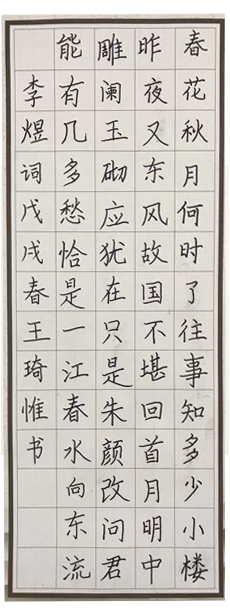 春花秋月何时了往事知多少小楼
昨夜又东风故国不堪回首月明中
雕阑玉砌应犹在只是朱颜改问君
能有几多愁恰是一江春水向东流
李煜词戊戌春王琦惟书